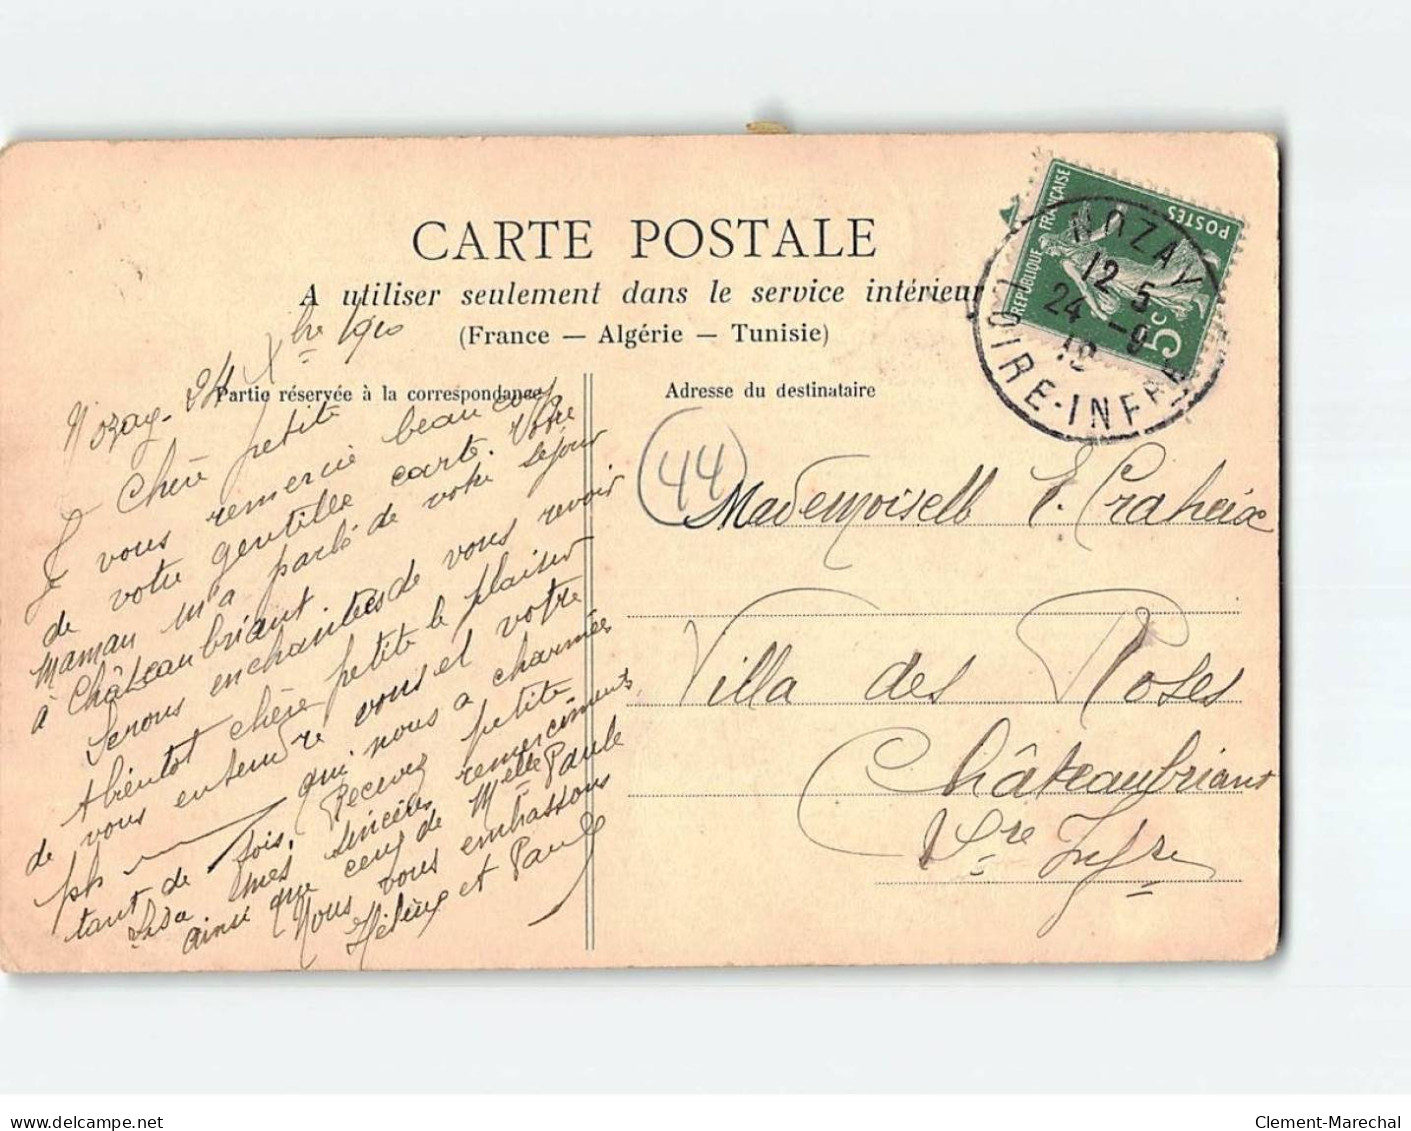 CARTE POSTALE
A utiliser seulement dans le service intérieur
(France — Algérie — Tunisie)
Partie réservée à la correspondance
Adresse du destinataire
REPUBLIQUE FRANÇAISE
POSTES
5c
NOZAY
12 5
24 -9
10
LOIRE-INFRE
44
Nozay - 24 Xbre 1910
Chère petite
Je vous remercie beaucoup
de votre gentille carte. Votre
maman m'a parlé de votre séjour
à Châteaubriant.
Serons enchantées de vous revoir
bientôt chère petite le plaisir
de vous entendre vous et votre
qui nous a charmées
tant de fois. Recevez petite
mes sincères remerciments
ainsi que ceux de Melle Paule
Nous vous embrassons
Hélène et Paule
Mademoiselle E. Craheix
Villa des Roses
Châteaubriant
Lre Infre
www.delcampe.net
Clement-Marechal